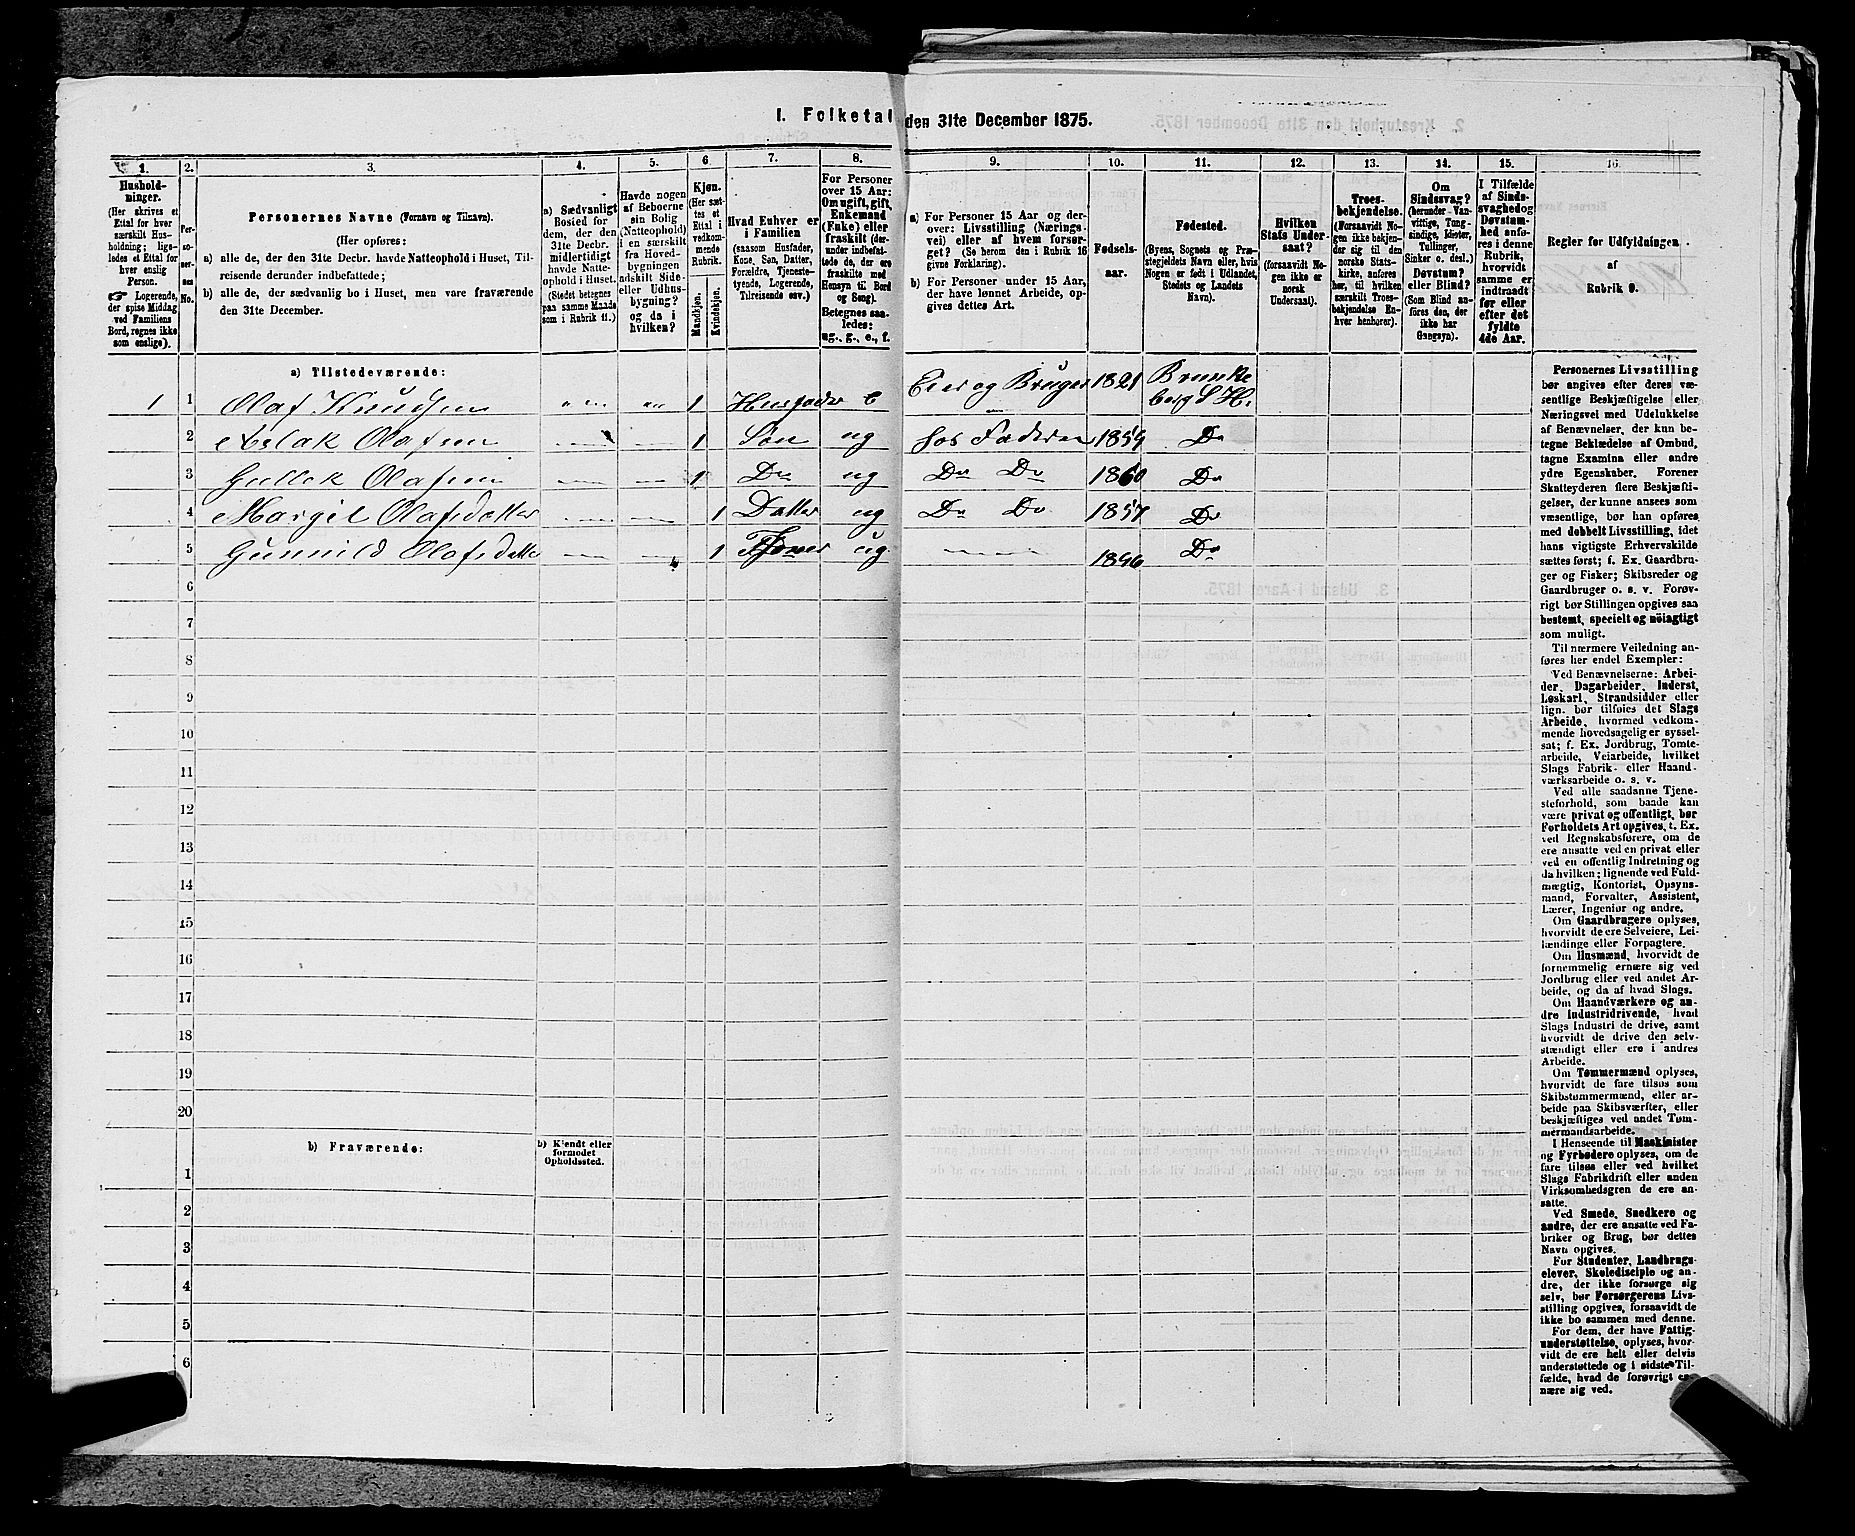 I. Folketal den 31te December 1875.
1.
2.
3.
4.
5.
6.
7.
8.
9.
10.
11.
12.
13.
14.
15.
16.
Hushold-
ninger.
(Her skrives et
Ettal for hver
særskilt Hus-
holdning; lige-
ledes et Ettal for
hver enslig
Person.
☞ Logerende,
der spise Middag
ved Familiens
Bord, regnes ikke
som enslige).
Per-
so-
ner-
nes
No.
Personernes Navne (Fornavn og Tilnavn).
(Her opføres:
a) alle de, der den 31te Decbr. havde Natteophold i Huset, Til-
reisende derunder indbefattede;
b) alle de, der sædvanlig bo i Huset, men vare fraværende
den 31te December.
a) Sædvanligt
Bosted for
dem, der den
31te Decbr.
midlertidigt
havde Natte-
ophold i Huset.
(Stedet betegnes
paa samme Maade
som i Rubrik 11.)
Havde nogen
af Beboerne
sin Bolig
(Natteophold)
i en særskilt
fra Hoved-
bygningen
adskilt Side-
eller Udhus-
bygning?
og da i
hvilken?
Kjøn.
(Her sæt-
tes et
Ettal i
vedkom-
mende
Rubrik.
Mandkjøn.
Kvindekjøn.
Hvad Enhver er
i Familien
(saasom Husfader,
Kone, Søn, Datter,
Forældre, Tjeneste-
tyende, Logerende,
Tilreisende osv.)
For Personer
over 15 Aar:
Om ugift, gift,
Enkemand
(Enke) eller
fraskilt (der-
under indbefat-
tede de, der ere
fraskilte med
Hensyn til Bord
og Seng).
Betegnes saa-
ledes:
ug., g., e., f.
a) For Personer 15 Aar og der-
over: Livsstilling (Nærings-
vei) eller af hvem forsør-
get? (Se herom den i Rubrik 16
givne Forklaring).
b) For Personer under 15 Aar,
der have lønnet Arbeide, op-
gives dettes Art.
Fødsels-
aar.
Fødested.
(Byens, Sognets og Præ-
stegjeldets Navn eller, hvis
Nogen er født i Udlandet,
Stedets og Landets
Navn).
Hvilken
Stats Under-
saat?
(forsaavidt No-
gen ikke er
norsk
Undersaat).
Troes-
bekjendelse.
(Forsaavidt No-
gen ikke bekjen-
der sig til den
norske Stats-
kirke, anføres
her, til hvilken
særskilt Troes-
bekjendelse En-
hver henhører).
Om
Sindssvag?
(herunder Van-
vittige, Tung-
sindige, Idioter,
Tullinger,
Sinker o. desl.)
Døvstum?
eller Blind?
(Som Blind an-
føres den, der
ikke har
Gangsyn).
I Tilfælde
af Sinds-
svaghed og
Døvstum-
hed anfø-
res i denne
Rubrik,
hvorvidt
samme er
indtraadt
før eller
efter det
fyldte
4de Aar.
Regler for Udfyldningen
af
Rubrik 9.
a) Tilstedeværende:
1 1 Olaf Knudsen 1 Husfader e Eier og Bruger 1821 Brunke
berg S H.
2 Aslak Olafsen 1 Søn ug hos Faderen 1859 Do
3 Gullek Olafsen 1 Do ug Do Do 1860 Do
4 Margit Olafsdatter 1 Datter ug Do Do 1857 Do
5 Gunnild Olafsdatter 1 ug 1846 Do
6
7
8
9
10
11
12
13
14
15
16
17
18
19
20
b) Fraværende:
b) Kjendt eller
formodet
Opholdssted.
1
2
3
4
5
6
Personernes Livsstilling
bør angives efter deres væ-
sentlige Beskjæftigelse eller
Næringsvei med Udelukkelse
af Benævnelser, der kun be-
tegne Beklædelse af Ombud,
tagne Examina eller andre
ydre Egenskaber. Forener
Skatteyderen flere Beskjæfti-
gelser, der kunne ansees som
væsentlige, bør han opføres
med dobbelt Livsstilling, idet
hans vigtigste Erhvervskilde
sættes først; f. Ex. Gaardbru-
ger og Fisker; Skibsreder og
Gaardbruger o. s. v. Forøv-
rigt bør Stillingen opgives saa
bestemt, specielt og nøiagtigt
som muligt.
Til nærmere Veiledning an-
føres her endel Exempler:
Ved Benævnelserne: Arbei-
der, Dagarbeider, Inderst,
Løskarl, Strandsidder eller
lign. bør tilføies det Slags
Arbeide, hvormed vedkom-
mende hovedsagelig er syssel-
sat; f. Ex. Jordbrug, Tomte-
arbeide, Veiarbeide, hvilket
Slags Fabrik- eller Haand-
værksarbeide o. s. v.
Ved alle saadanne Tjene-
steforhold, som baade kan
være privat og offentligt, bør
Forholdets Art opgives, t. Ex.
ved Regnskabsførere, om de
ere ansatte ved en privat eller
ved en offentlig Indretning og
da hvilken; lignende ved Fuld-
mægtig, Kontorist, Opsyns-
mand, Forvalter, Assistent,
Lærer, Ingeniør og andre.
Om Gaardbrugere oplyses,
hvorvidt de ere Selveiere, Lei-
lændinge eller Forpagtere.
Om Husmænd, hvorvidt de
fornemmelig ernære sig ved
Jordbrug eller ved andet Ar-
beide, og da af hvad Slags.
Om Haandværkere og an-
dre Industridrivende, hvad
Slags Industri de drive, samt
hvorvidt de drive den selv-
stændigt eller ere i andres
Arbeide.
Om Tømmermænd oplyses,
hvorvidt de fare tilsøs som
Skibstømmermænd, eller ar-
beide paa Skibsværfter, eller
beskjæftiges ved andet Tøm-
mermandsarbeide.
I Henseende til Maskinister
og Fyrbødere oplyses, om de
fare tilsøs eller ved hvilket
Slags Fabrikdrift eller anden
Virksomhedsgren de ere an-
satte.
Ved Smede, Snedkere og
andre, der ere ansatte ved Fa-
briker og Brug, bør dettes
Navn opgives.
For Studenter, Landbrugs-
elever, Skoledisciple og an-
dre, der ikke forsørge sig
selv, bør Forsørgerens Livs-
stilling opgives, forsaavidt de
ikke bo sammen med denne.
For dem, der have Fattig-
understøttelse, oplyses, hvor-
vidt de ere helt eller delvis
understøttede og i sidste Til-
fælde, hvad de forøvrigt er-
nære sig ved.